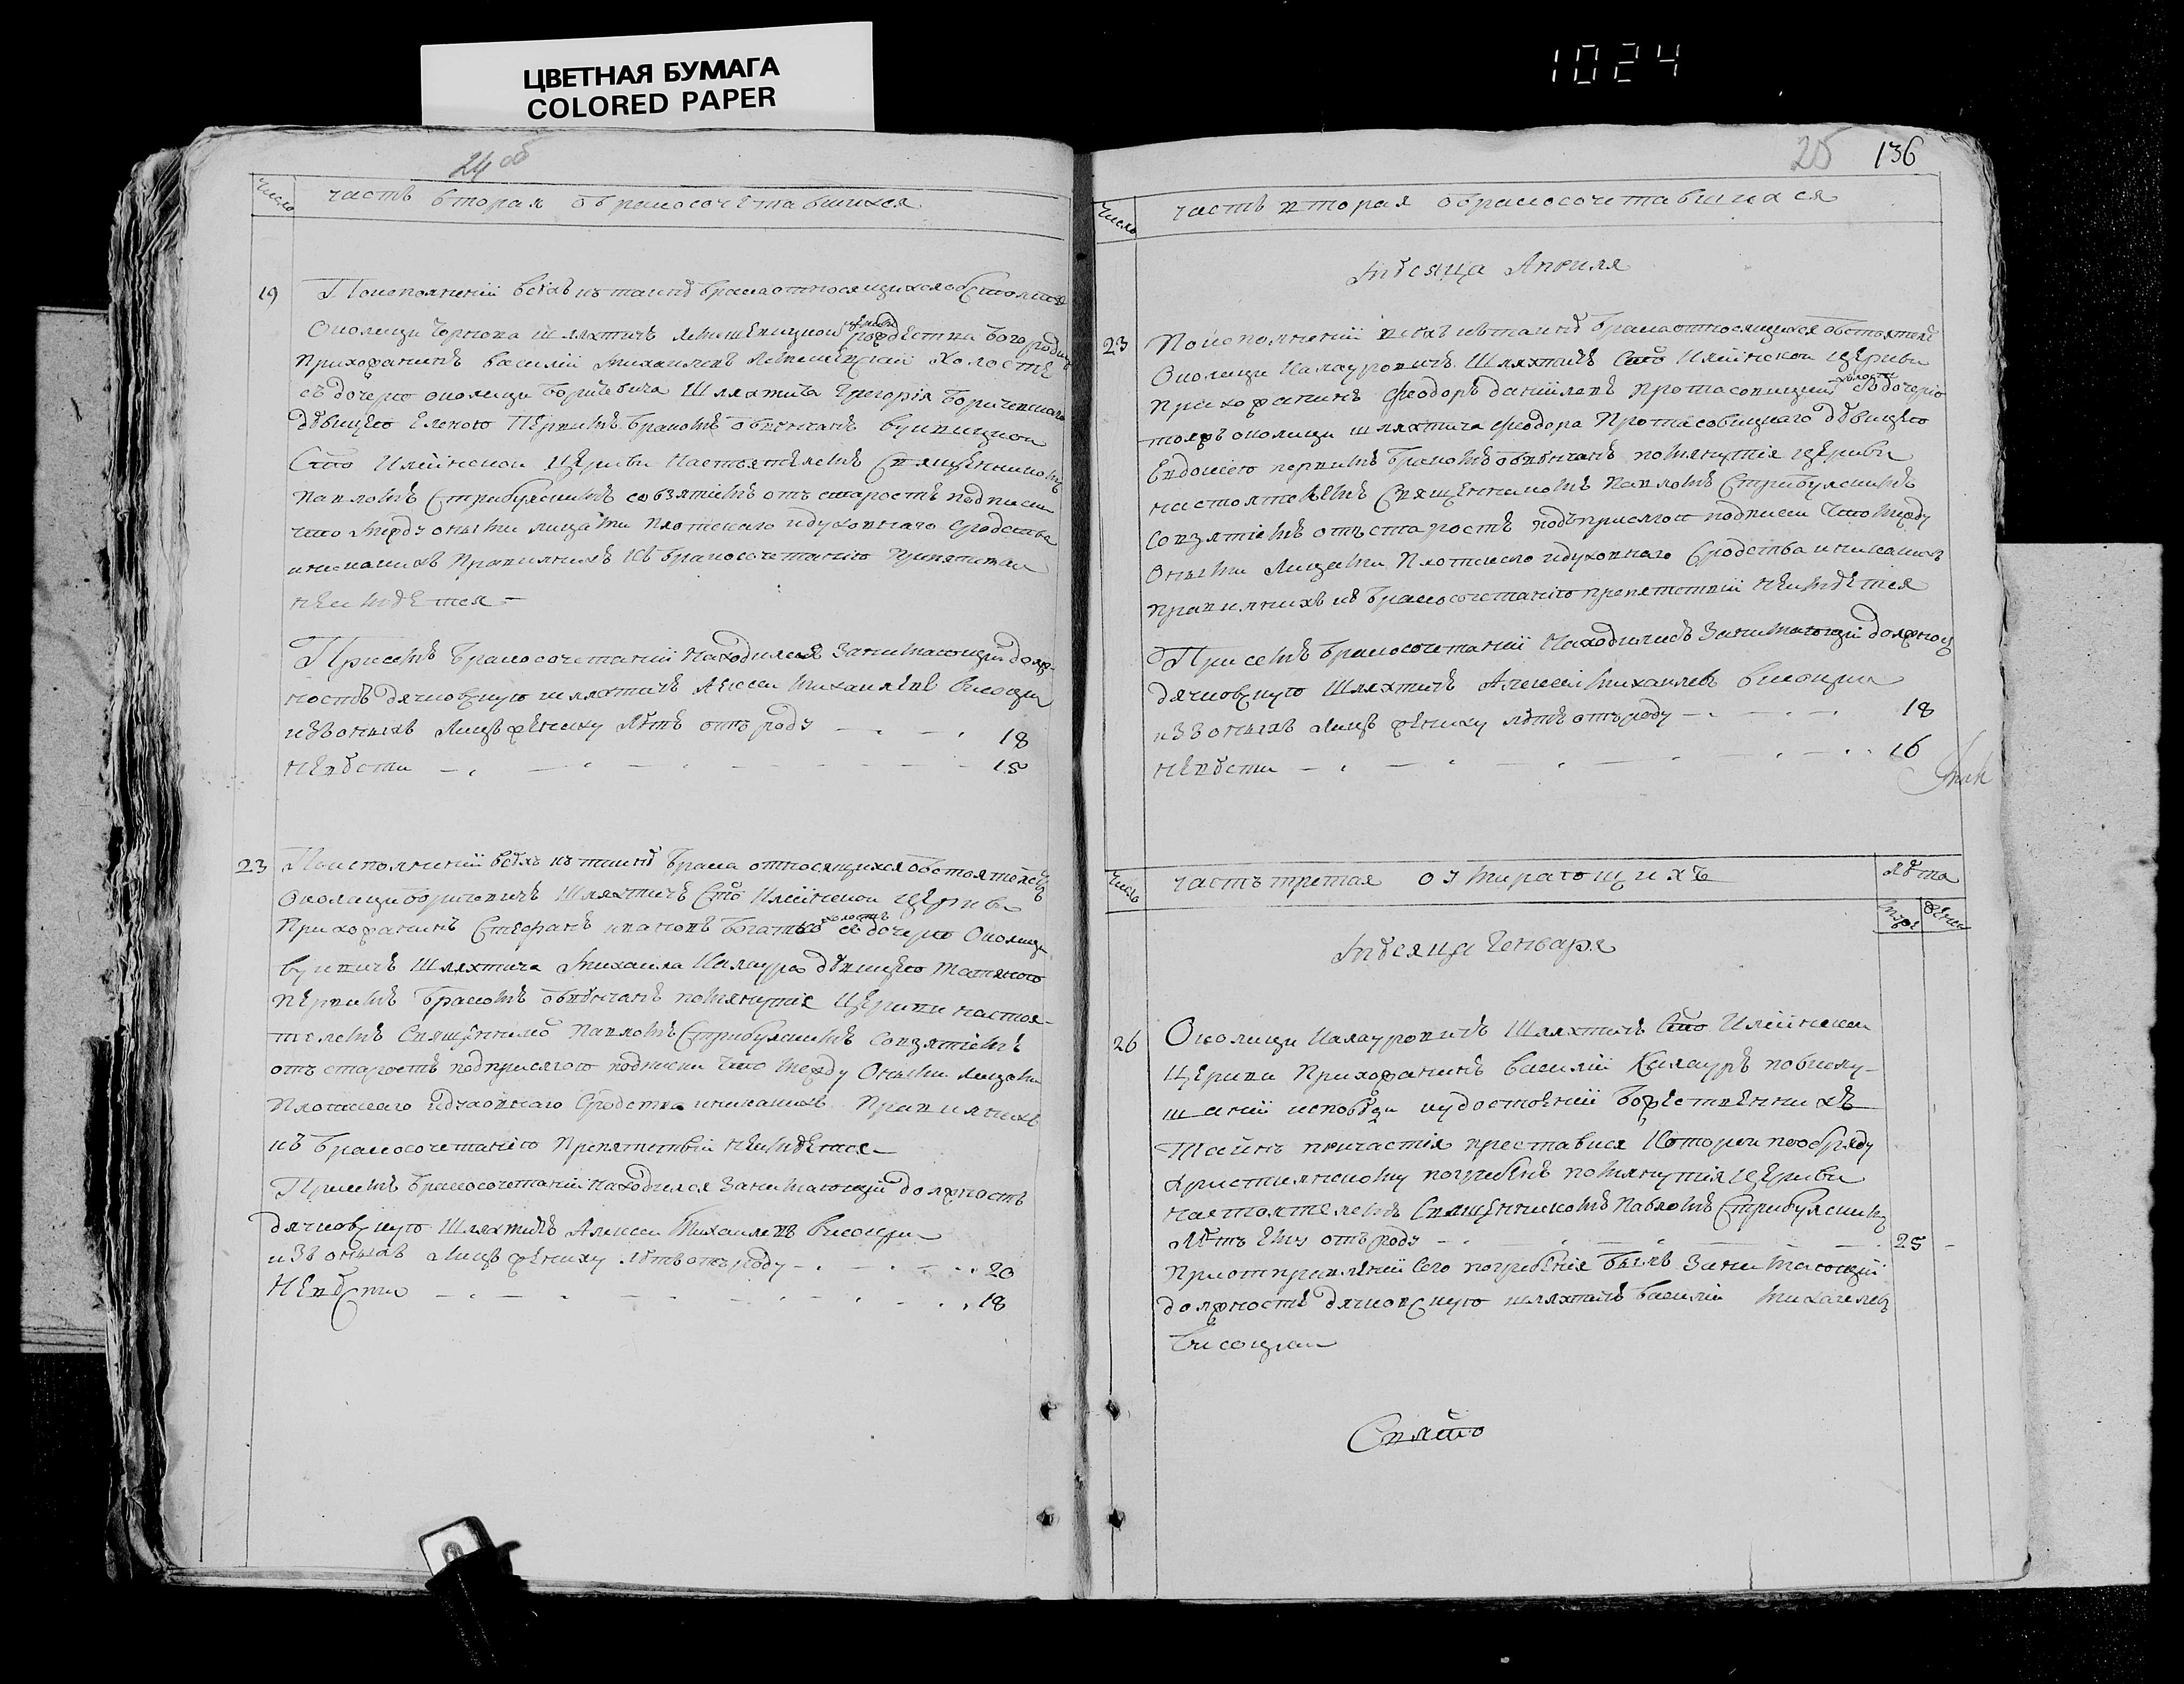 ЦВЕТНАЯ БУМАГА
COLORED PAPER
1024
24 об
Число
часть вторая о бракосочетавшихся
19
По исполнении всехъ къ таинѣ брака относящихся обстоят
Околицы Чорнова шляхтичъ рождества Богородиц
Прихожанинъ василий Михаилевъ холостъ
съ дочерю околицы Боричевича Шляхтича Григория Боричевского
дѣвицею Еленою первимъ бракомъ обвенчанъ
Сто Илїинской церкви настоятелемъ священникомъ
Павломъ Стрибульскимъ со взятіемъ отъ старостъ подписки
что между оными лицами плотскаго и духовнаго сродства
и никакихъ правилнихъ къ бракосочетанію препятствии
неимѣется –
При семъ бракосочетаніи находился занимающий долж-
ность дячковскую шляхтичъ Алексеи Михаилевъ Висоцки
изъ оныхъ лицъ жениху лѣтъ отъ роду 18
невѣсти 15
23
По исполнении всѣхъ къ таинѣ брака относящихся обстоятелс
Околицы Боричевичъ Шляхтичъ Сто Илїинской церкви
Прихожанинъ Стефанъ Ивановъ холостъ съ дочерю Околицы
Шляхтича Михаила Калаура дѣвицею Татяною
первимъ бракомъ обвѣнчанъ помянутія Церкви настоя-
телемъ Священнико Павломъ Стрибульскимъ со взятіемъ
отъ старостъ подприсягою подписки что между оными лицами
плотскаго и духовнаго сродства и никакихъ правилнихъ
къ бракосочетанію препятствий неимѣется –
При семъ бракосочетаніи находился занимающий должность
дячковскую Шляхтичъ Алексеи Михаилевъ Висоцки
изъ оныхъ лицъ жениху лѣтъ отъ роду 20
невѣсти 18
25 136
Число
часть вторая о бракосочетавшихся
Мѣсяца Априля
23
По исполнении всѣхъ къ таинѣ брака относящихся обстоятел
Околицы Калауровичъ Шляхтичъ Сто Илїинской церкви
прихожанинъ Феодоръ Данїилевъ Протасовицкий холостъ съ дочерію
тояжъ околицы шляхтича Феодора Протасовицкаго дѣвицею
Евдокіею первимъ бракомъ обвѣнчанъ помянутія церкви
настоятелемъ Священникомъ Павломъ Стрибульскимъ
со взятіемъ отъ старостъ подъ присягою подписки что между
оными лицами плотскаго и духовнаго сродства и никакихъ
правилнихъ къ бракосочетанію препятствий неимѣется
При семъ бракосочетаніи находился занимающий должнос
дячковскую Шляхтичъ Алексеи Михаилевъ Висоцки
изъ оныхъ лицъ жениху лѣтъ отъ роду 18
невѣсти 16
Число
часть третая о умирающихъ
лѣта
муж
женс
Мѣсяца Генваря
26
Околици Калауровичъ Шляхтичъ Сто Илїинской
церкви прихожанинъ Василий Калауръ по
исповѣди и удостоении божественнихъ
Тайнъ причастія преставися которои по обряду
христианскому погребенъ помянутія церкви
настоятелемъ Священникомъ Павломъ Стрибульскимъ
лѣтъ ему отъ роду 25
При отправлении сего погребенія былъ занимающий
должность дячковскую шляхтичъ Василий Михаилевъ
Висоцкии
Свято